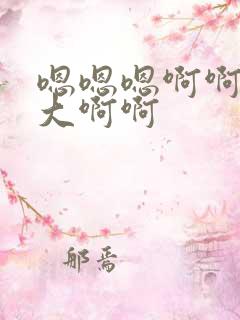 嗯嗯嗯啊啊
大啊啊
邮焉